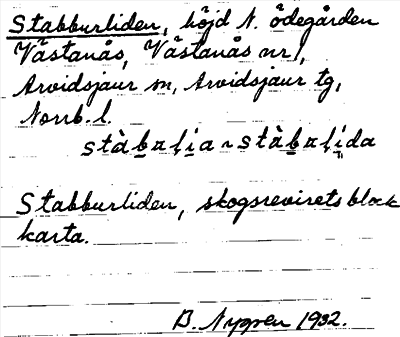 Stabburliden, höjd N. ödegården
Västanås, Västanås nr 1,
Arvidsjaur sn, Arvidsjaur tg,
Norrb. l.
Stabburliden, skogsrevirets block
karta.
B. Nygren 1932.